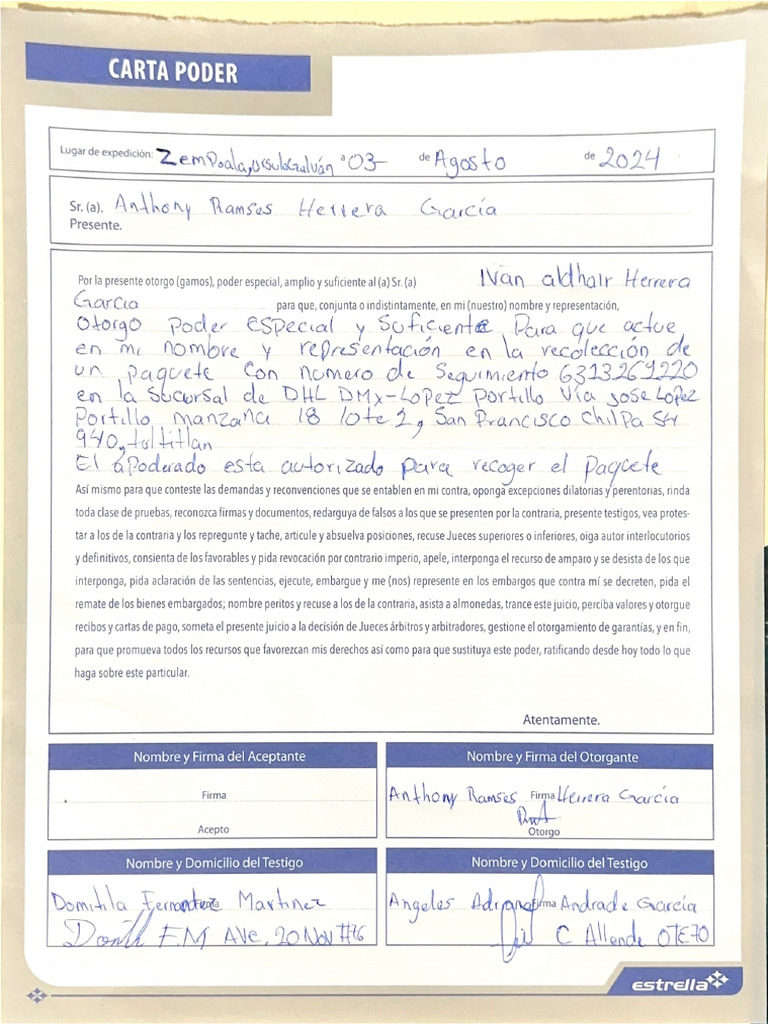 CARTA PODER
Lugar de expedición: Zempoala, Ursulo Galván a 03 de Agosto de 2024
Sr. (a). Anthony Ramses Herrera García
Presente.
Por la presente otorgo (gamos), poder especial, amplio y suficiente al (a) Sr. (a) Ivan aldhair Herrera
Garcia para que, conjunta o indistintamente, en mi (nuestro) nombre y representación,
Otorgo poder especial y suficiente para que actue
en mi nombre y representación en la recolección de
un paquete con numero de seguimiento 6313261220
en la sucursal de DHL DMX-Lopez Portillo Via Jose Lopez
Portillo manzana 18 lote 2, San Francisco Chilpa 54
940, tultitlan
El apoderado esta autorizado para recoger el paquete
Así mismo para que conteste las demandas y reconvenciones que se entablen en mi contra, oponga excepciones dilatorias y perentorias, rinda
toda clase de pruebas, reconozca firmas y documentos, redarguya de falsos a los que se presenten por la contraria, presente testigos, vea protes-
tar a los de la contraria y los repregunte y tache, articule y absuelva posiciones, recuse Jueces superiores o inferiores, oiga autor interlocutorios
y definitivos, consienta de los favorables y pida revocación por contrario imperio, apele, interponga el recurso de amparo y se desista de los que
interponga, pida aclaración de las sentencias, ejecute, embargue y me (nos) represente en los embargos que contra mí se decreten, pida el
remate de los bienes embargados; nombre peritos y recuse a los de la contraria, asista a almonedas, trance este juicio, perciba valores y otorgue
recibos y cartas de pago, someta el presente juicio a la decisión de Jueces árbitros y arbitradores, gestione el otorgamiento de garantías, y en fin,
para que promueva todos los recursos que favorezcan mis derechos así como para que sustituya este poder, ratificando desde hoy todo lo que
haga sobre este particular.
Atentamente.
Nombre y Firma del Aceptante
Firma
Acepto
Nombre y Firma del Otorgante
Anthony Ramses Firma Herrera García
Otorgo
Nombre y Domicilio del Testigo
Domitila Fernandez Martinez
F.M Ave. 20 Nov #76
Nombre y Domicilio del Testigo
Angeles Adriana Firma Andrade García
C Allende OTE70
estrella